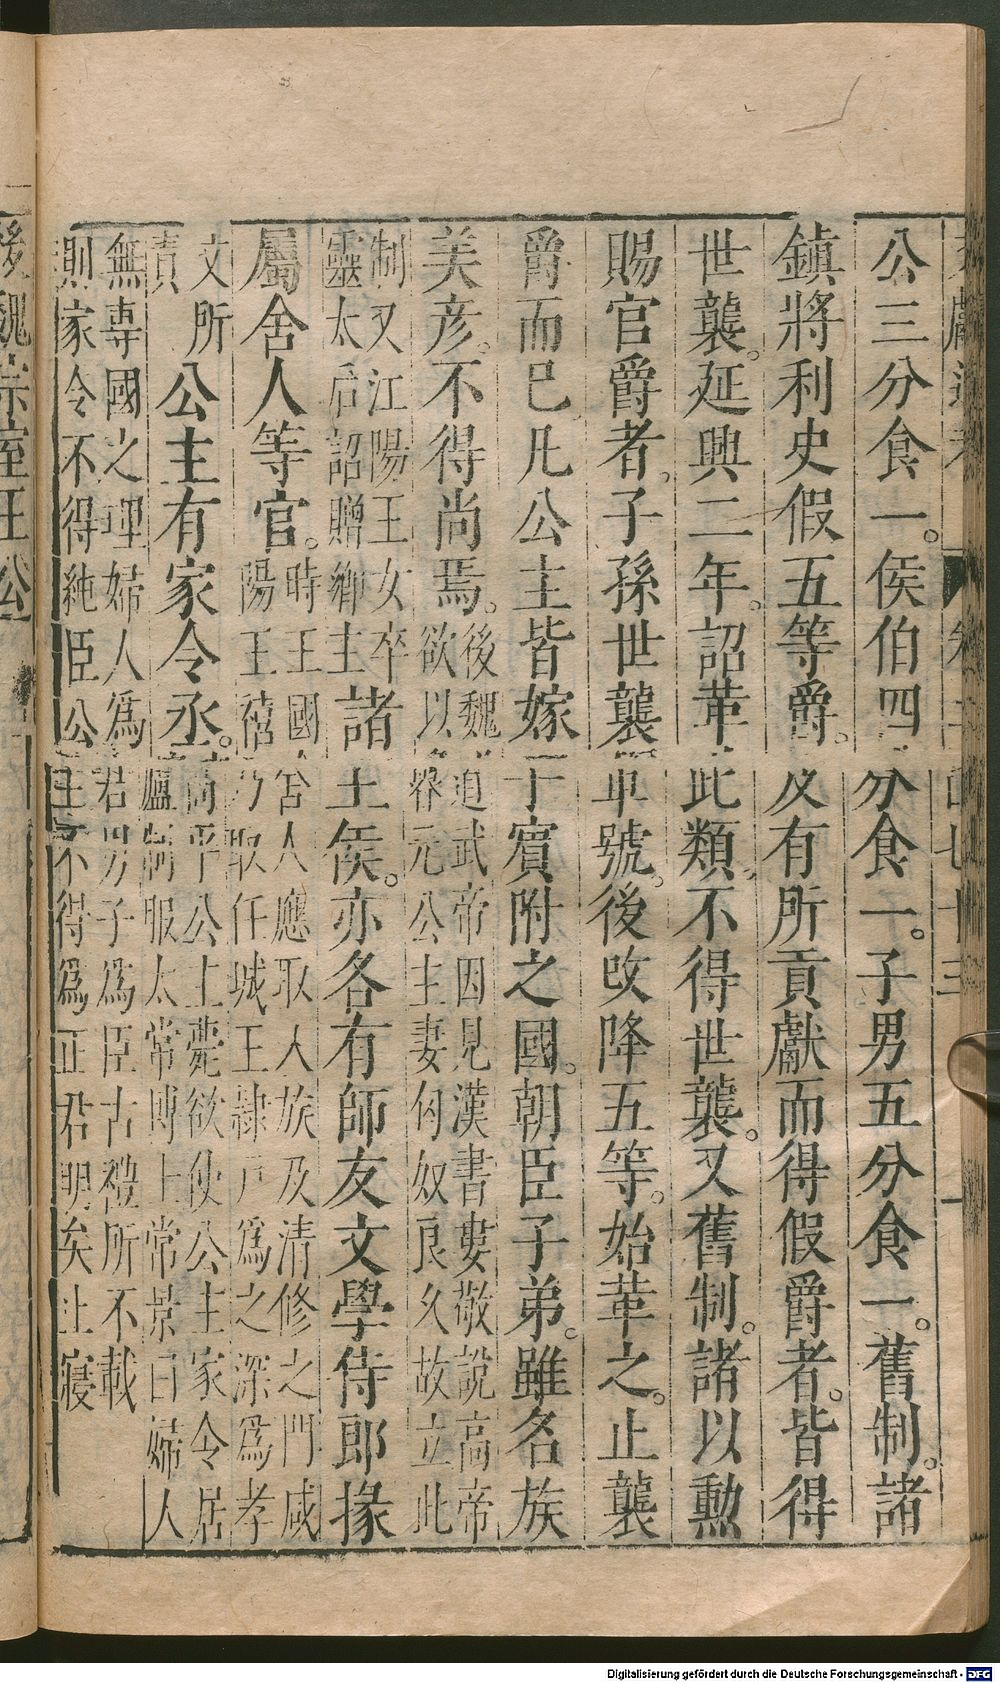 文獻通考 卷二百七十三 一
公三分食一。侯伯四分食一。子男五分食一。舊制。諸
鎮將利史假五等爵。及有所貢獻而得假爵者。皆得
世襲。延興二年。詔革此類。不得世襲。又舊制。諸以勲
賜官爵者。子孫世襲軍號。後改降五等。始革之。止襲
爵而已。凡公主皆嫁于賓附之國。朝臣子弟。雖名族
美彦。不得尚焉。
後魏道武帝因見漢書婁敬說高帝
欲以魯元公主妻匈奴良久故立此
制又江陽王女卒
靈太后詔贈鄉主
諸王侯。亦各有師友文學侍郎掾
屬舍人等官。
時王國舍人應取人族及清修之門咸
陽王禧乃取任城王隷戶爲之深爲孝
文所
責
公主有家令丞。
高平公主薨欲使公主家令居
廬制服太常博士常景曰婦人
無專國之理婦人爲君男子爲臣古禮所不載
則家令不得純臣公主不得爲正君明矣止寢
後魏宗室王公
Digitalisierung gefördert durch die Deutsche Forschungsgemeinschaft - DFG